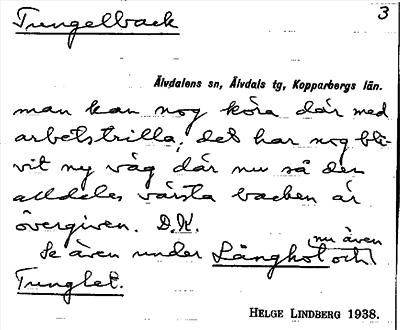 Tungelback
3
Älvdalens sn, Älvdals tg, Kopparbergs län.
man kan nog köra där med
arbetstrilla, det har nog bli-
vit ny väg där nu så den
alldeles värsta backen är
övergiven. D.K.
nu även
Se även under Långhol och
Tunglet.
HELGE LINDBERG 1938.